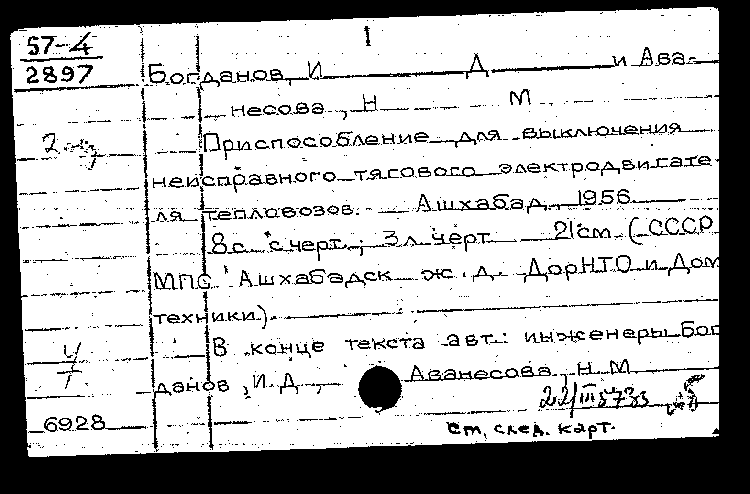 1
57-4
2897
Богданов, И Д и Ава-
несова, Н М
Приспособление для выключения
неисправного тягового электродвигате-
ля тепловозов. Ашхабад, 1956.
8 с. с черт.; 3 л. черт 21 см. (СССР
МПС Ашхабадск ж. д. ДорНТО и Дом
техники).
В конце текста авт.: инженеры Бог
данов, И. Д., Аванесова, Н. М
6928
см. след. карт.